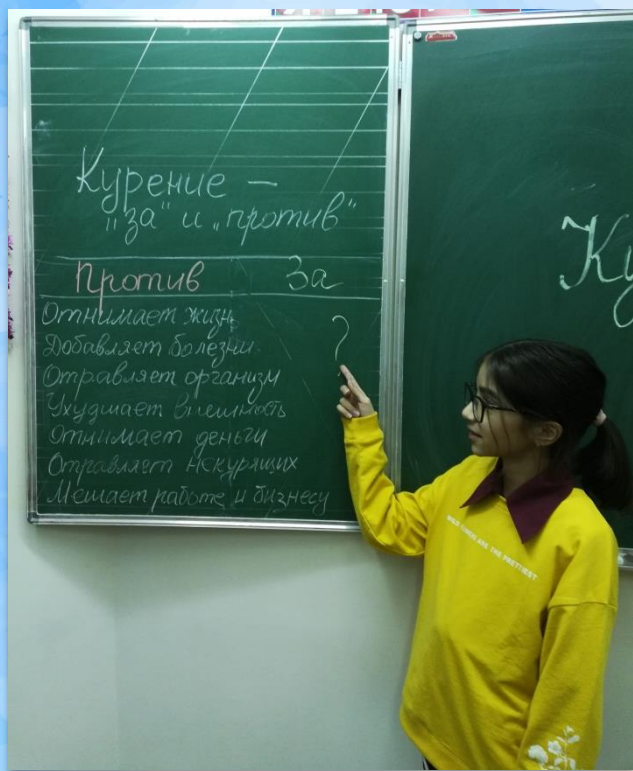 Курение –
"за" и „против"
Против За
Отнимает жизнь
Добавляет болезни
?
Отравляет организм
Ухудшает внешность
Отнимает деньги
Отравляет некурящих
Мешает работе и бизнесу
Ку
ARE THE PRETTIEST